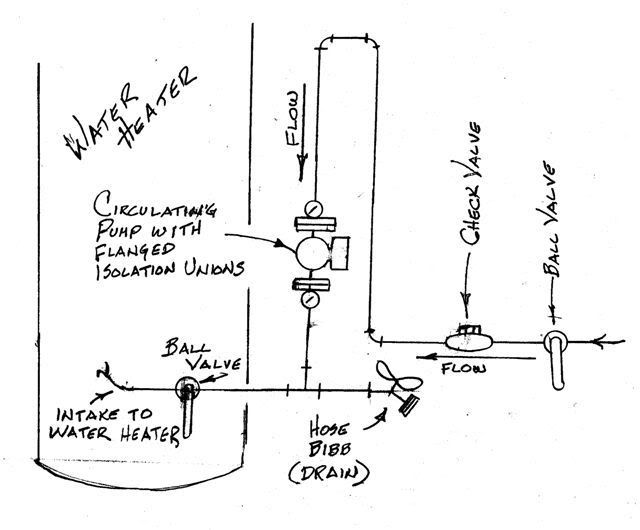 WATER
HEATER
FLOW
CIRCULATING
PUMP WITH
FLANGED
ISOLATION UNIONS
CHECK VALVE
BALL VALVE
FLOW
BALL
VALVE
INTAKE TO
WATER HEATER
HOSE
BIBB
(DRAIN)